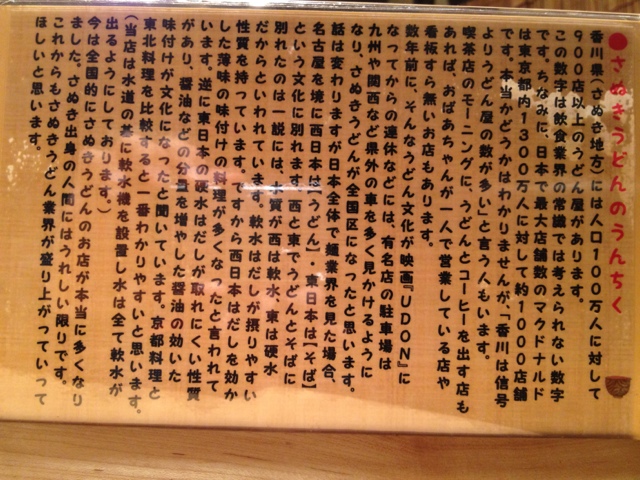 ●さぬきうどんのうんちく
香川県（さぬき地方）には人口100万人に対して
900店以上のうどん屋があります。
この数字は飲食業界の常識では考えられない数字
です。ちなみに、日本で最大店舗数のマクドナルド
は東京都内1300万人に対して約1000店舗
です。本当かどうかはわかりませんが、「香川は信号
よりうどん屋の数が多い」と言う人もいます。
喫茶店のモーニングに、うどんとコーヒーを出す店も
あれば、おばあちゃんが一人で営業している店や
看板すら無いお店もあります。
数年前に、そんなうどん文化が映画『UDON』に
なってからの連休などには、有名店の駐車場は
九州や関西など県外の車を多く見かけるように
なり、さぬきうどんが全国区になったと思います。
話は変わりますが日本全体で麺業界を見た場合、
名古屋を境に西日本は【うどん】・東日本は【そば】
という文化に別れます。西と東でうどんとそばに
別れたのは一説には、水質が西は軟水、東は硬水
だからといわれています。軟水はだしが摂りやすい
性質を持っています。ですから西日本はだしを効か
した薄味の味付けの料理が多くなったと言われて
います。逆に東日本の硬水はだしが取れにくい性質
があり、醤油などの分量を増やした醤油の効いた
味付けが文化になったと聞いています。京都料理と
東北料理を比較すると一番わかりやすいと思います。
（当店は水道の基に軟水機を設置し水は全て軟水が
出るようにしております。）
今は全国的にさぬきうどんのお店が本当に多くなり
ました。さぬき出身の人間にはうれしい限りです。
これからもさぬきうどん業界が盛り上がっていって
ほしいと思います。